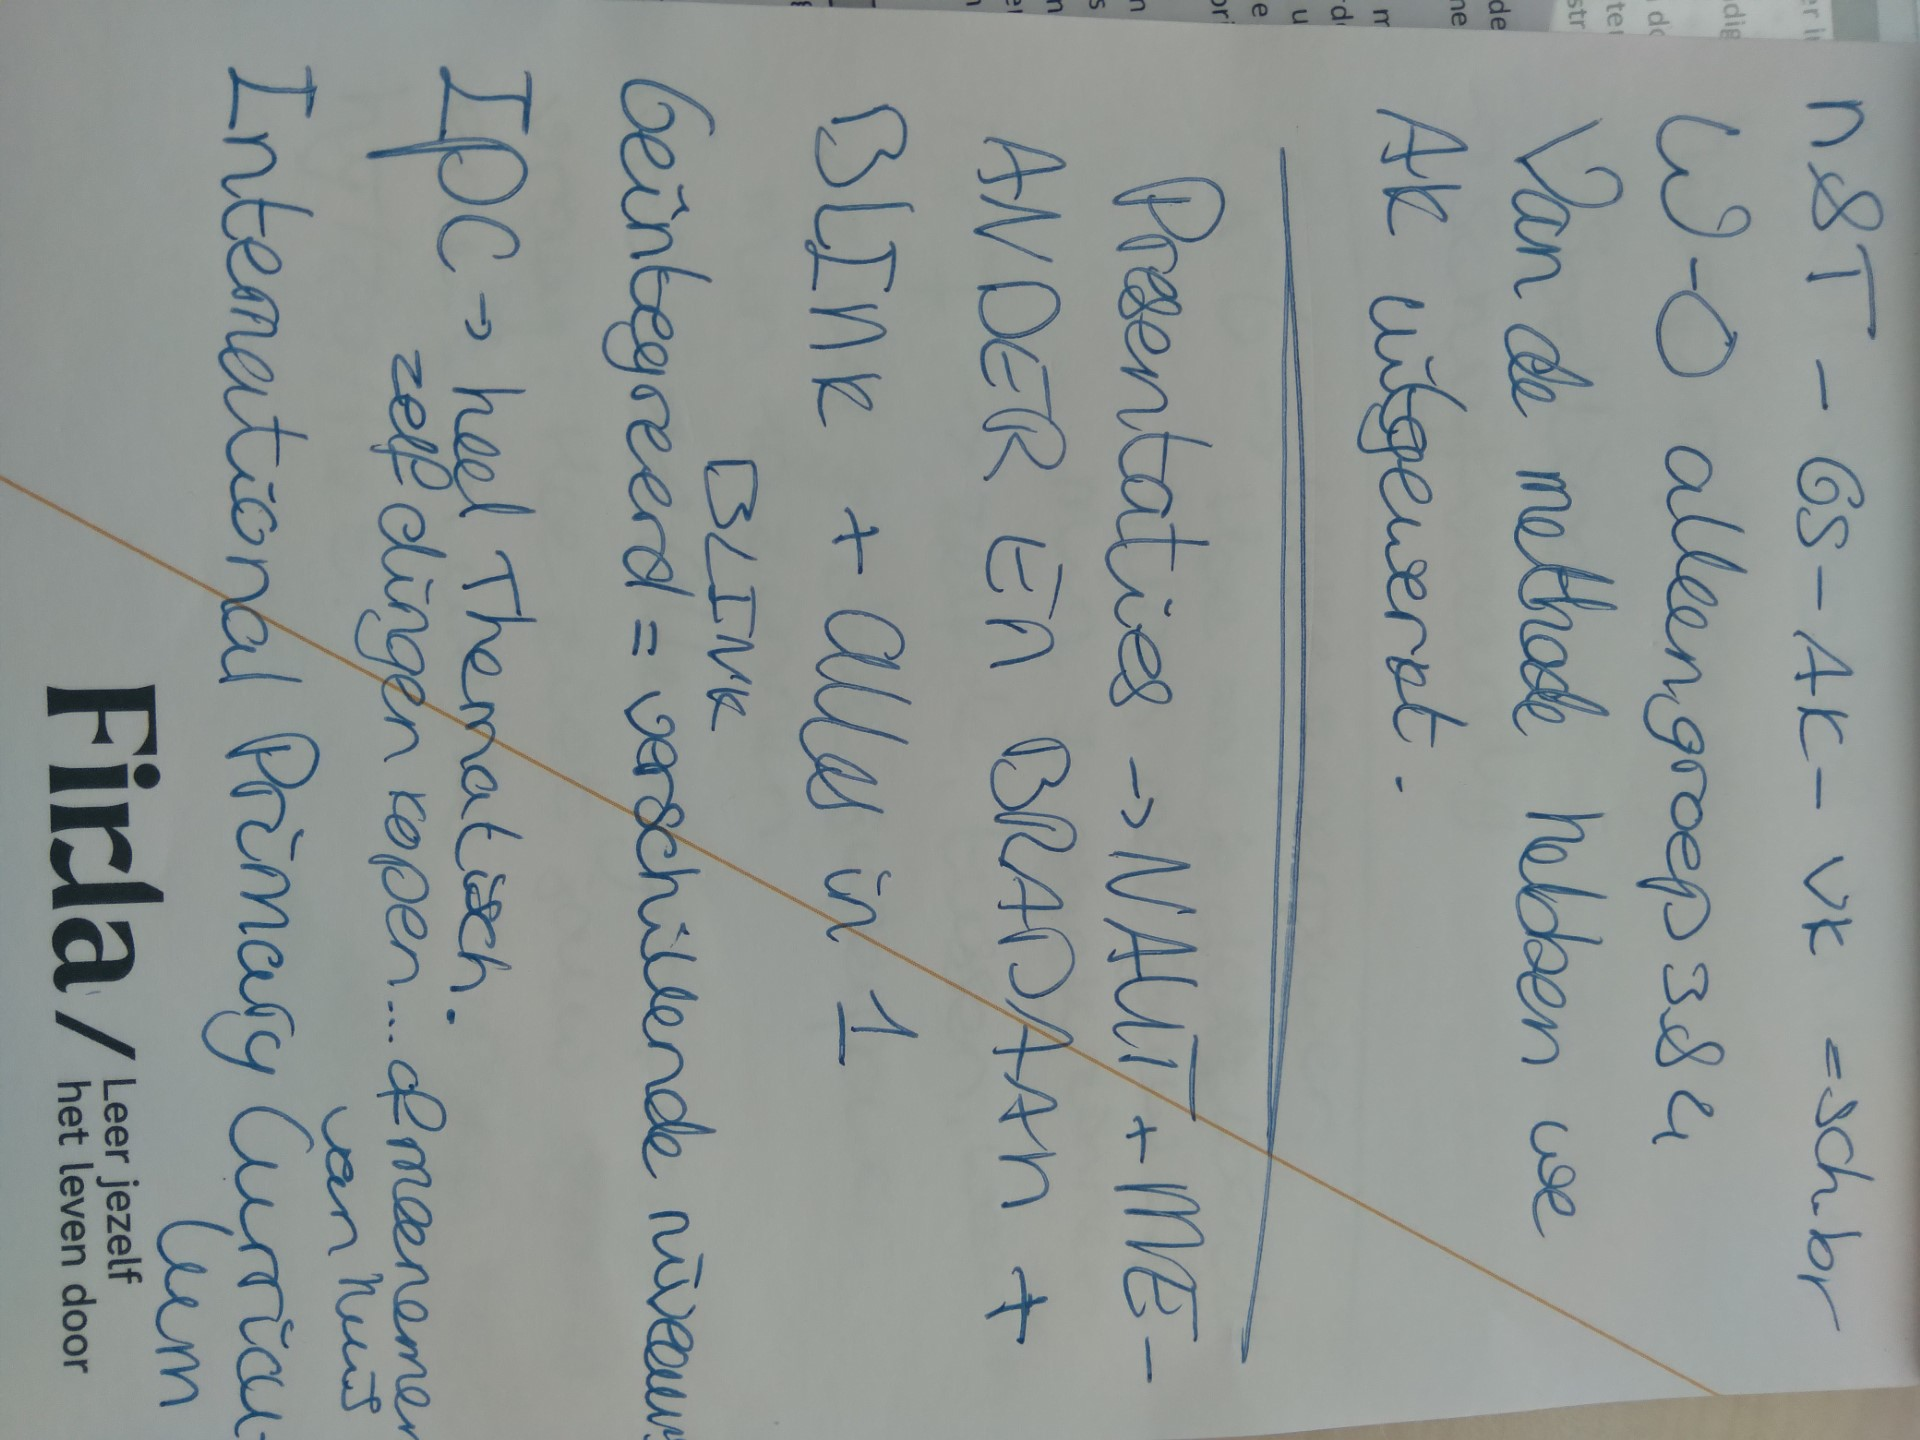 n&T - GS - AK - VK = sch.br
W-O alleen groep 3&4
Van de methode hebben we
AK uitgewerkt.
Presentaties -> NAUT + ME-
ANDER EN BRANDAAN +
BLINK + alles in 1
BLINK
Geïntegreerd = verschillende niveaus
IPC -> heel Thematisch.
zelf dingen kopen... of meenemen
van huis
International Primary Curricu-
lum
Firda / Leer jezelf
het leven door